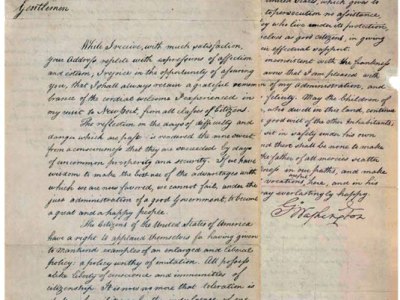 Gentlemen
While I receive, with much satisfaction,
your Address replete with expressions of affection
and esteem, I rejoice in the opportunity of assuring
you, that I shall always retain a grateful
of the cordial welcome I experienced in
my visit to Newport, from all classes of Citizens.
The reflection on the days of difficulty and
danger which are past is rendered the more sweet,
from a consciousness that they are succeeded by days
of uncommon prosperity and security. If we have
wisdom to make the best use of the advantages with
which we are now favored, we cannot fail, under the
just administration of a good Government, to become
a great and a happy people.
The Citizens of the United States of America
have a right to applaud themselves for having given
to Mankind examples of an enlarged and liberal
policy: a policy worthy of imitation. All possess
alike liberty of conscience and immunities of
citizenship. It is now no more that toleration is
United States, which gives to
to persecution no assistance
they who live under its protection,
selves as good citizens, in giving
effectual support.
inconsistent with the frankness
avow that I am pleased with
of my Administration, and
felicity. May the Children of
who dwell in this land, continue
good will of the other Inhabitants;
sit in safety under his own
and there shall be none to make
the father of all mercies scatter
ness in our paths, and make
vocations here, and in his
way everlastingly happy.
G. Washington